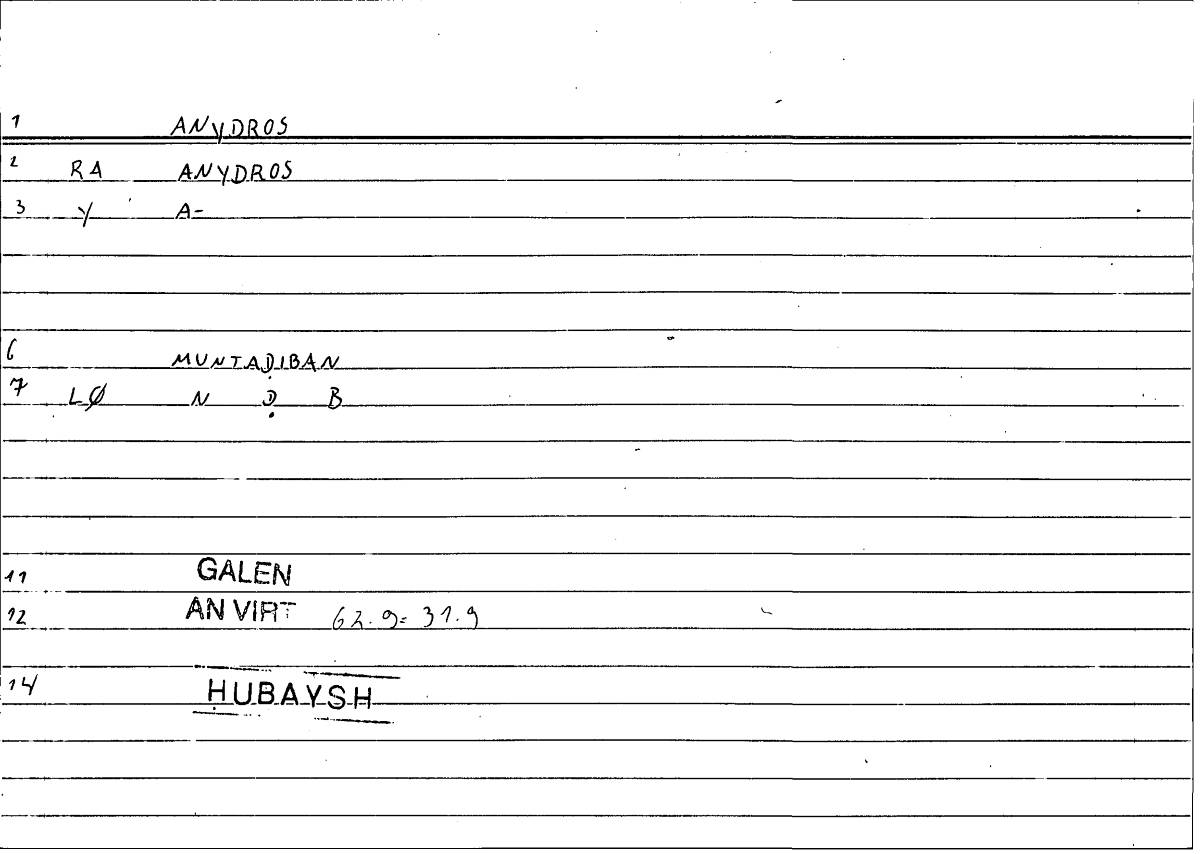 1 ANYDROS
2 RA ANYDROS
3 Y A-
6 MUNTAḌIBAN
7 LØ N Ḍ B
11 GALEN
12 AN VIRT 62.9= 31.9
14 ḤUBAYSH